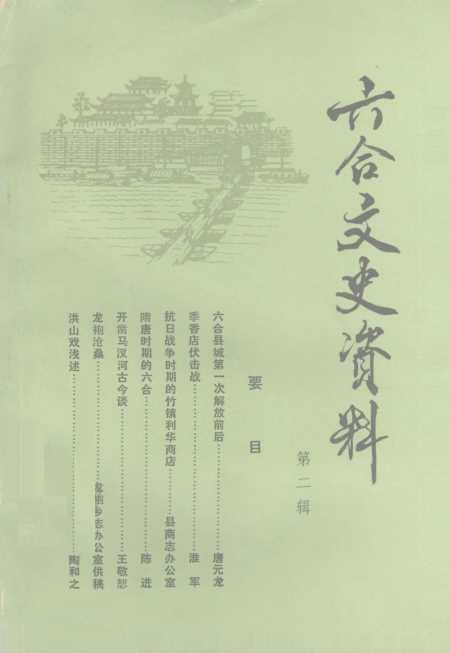 六合文史资料
第二辑
要目
六合县城第一次解放前后……唐元龙
季香店伏击战……淮军
抗日战争时期的竹镇利华商店……县商志办公室
隋唐时期的六合……陈进
开凿马汊河古今谈……王敬恕
龙袍沧桑……乡志办公室供稿
洪山戏浅述……陶和之